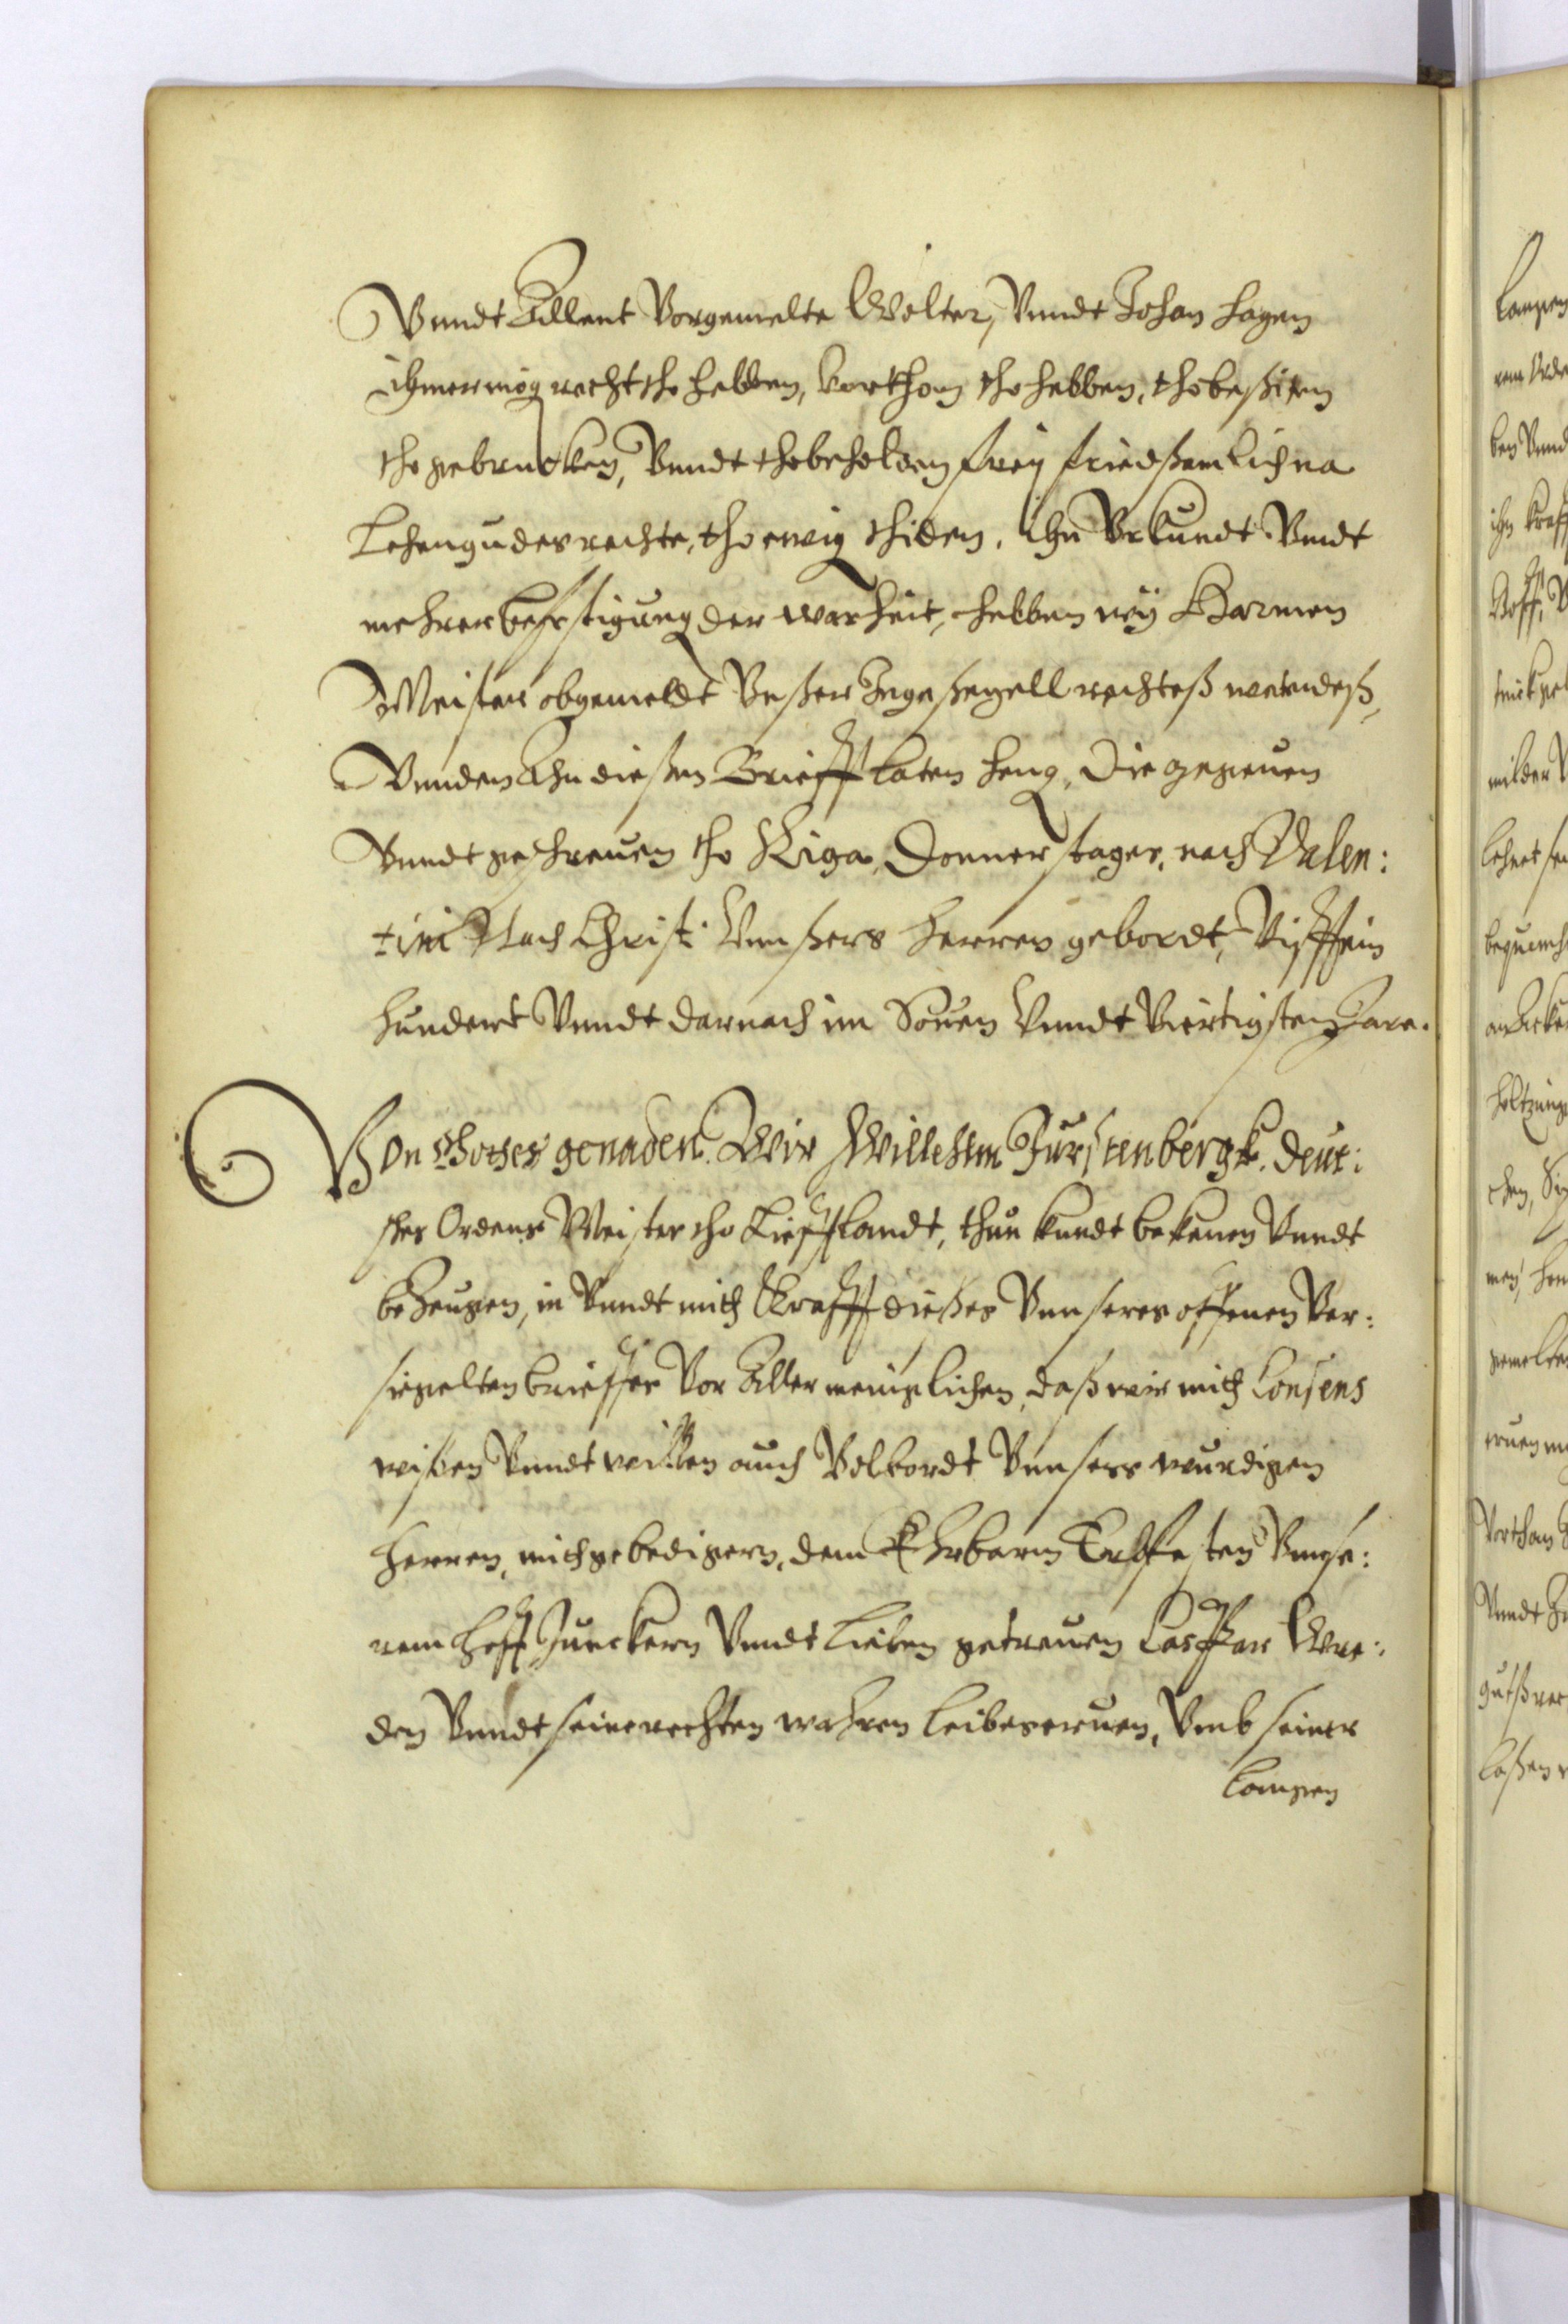 Vnndt Allent Vorgemelte Wolter, Vnndt Johan hagen
Ihmermög recht tho hebben, vorthon tho hebben, tho beßitten
tho gebrucken, Vnndt tho beholden freÿ friedßamlich na
Lehengudes rechte, tho ewig thiden. Ihn Vrkundt Vnndt
mehrer befestigung der warheit, hebben wÿ Harmen
Meister obgemeldt Vnßer Ingeßegell rechteß wetendeß,
Vnnden Ahn dießen Brieff laten heng, Die gegeuen
Vnndt geschreuen tho Riga, Donnerstages, nach Valen:
tini Nach Christi Vnnßers Herren gebordt, Vifftein
hundert Vnndt darnach im Souen Vnndt Viertigsten Jare.
Von Gottes genaden Wir Willehlm Fürstenbergk deut:
sches Ordens Meister tho Liefflandt, thun kundt bekenen Vnndt
bezeugen, in Vnndt mith Krafft dießes Vnnseres offenen Ver:
siegelten brieffes Vor Aller menniglichen, daß wir mith Consens
wißen Vnndt willen auch Volbordt Vnnsers wurdigen
Herren, mithgebedigern, dem Ehrbarn Erffesten Vnnse:
rem hoff Junckern Vnndt lieben getreuen Casspar Wre:
den Vnndt seine rechten wahren leibeseruen, Vmb seiner
langen